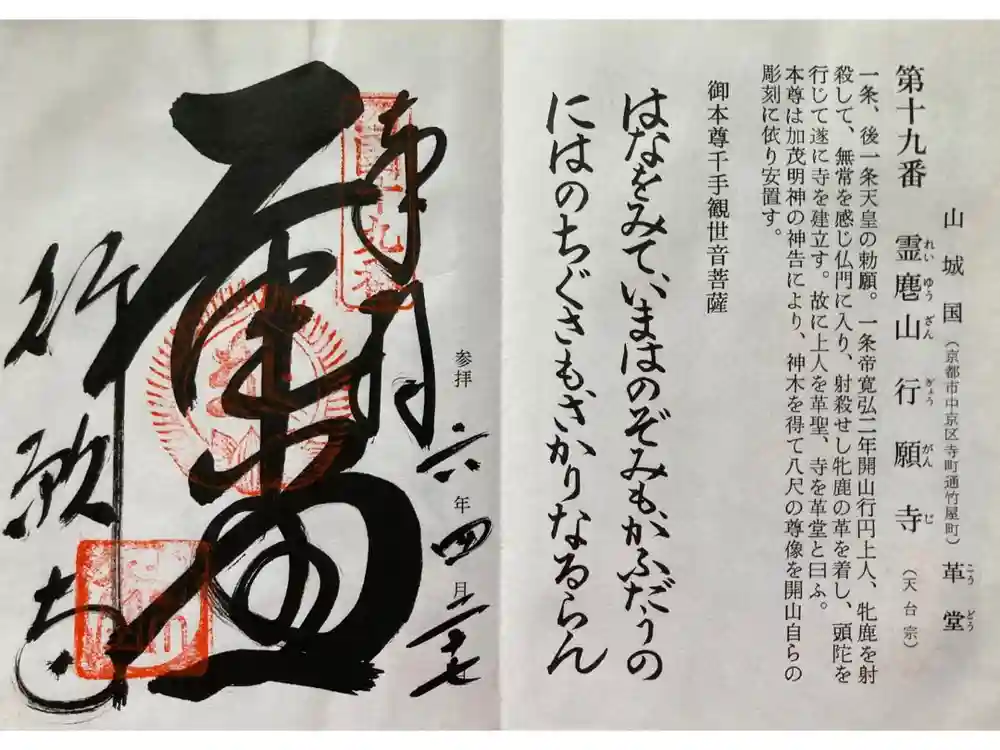 山城国(京都市中京区寺町通竹屋町)革堂
こうどう
第十九番 霊麀山 行願寺(天台宗)
れいゆうざん ぎょうがんじ
一条、後一条天皇の勅願。一条帝寛弘二年開山行円上人、牝鹿を射
殺して、無常を感じ仏門に入り、射殺せし牝鹿の革を着し、頭陀を
行じて遂に寺を建立す。故に上人を革聖、寺を革堂と曰ふ。
本尊は加茂明神の神告により、神木を得て八尺の尊像を開山自らの
彫刻に依り安置す。
御本尊千手観世音菩薩
はなをみて、いまはのぞみも、かふだうの
にはのちぐさも、さかりなるらん
参拝 六年四月二十七
奉拝
西国十九番
行願寺